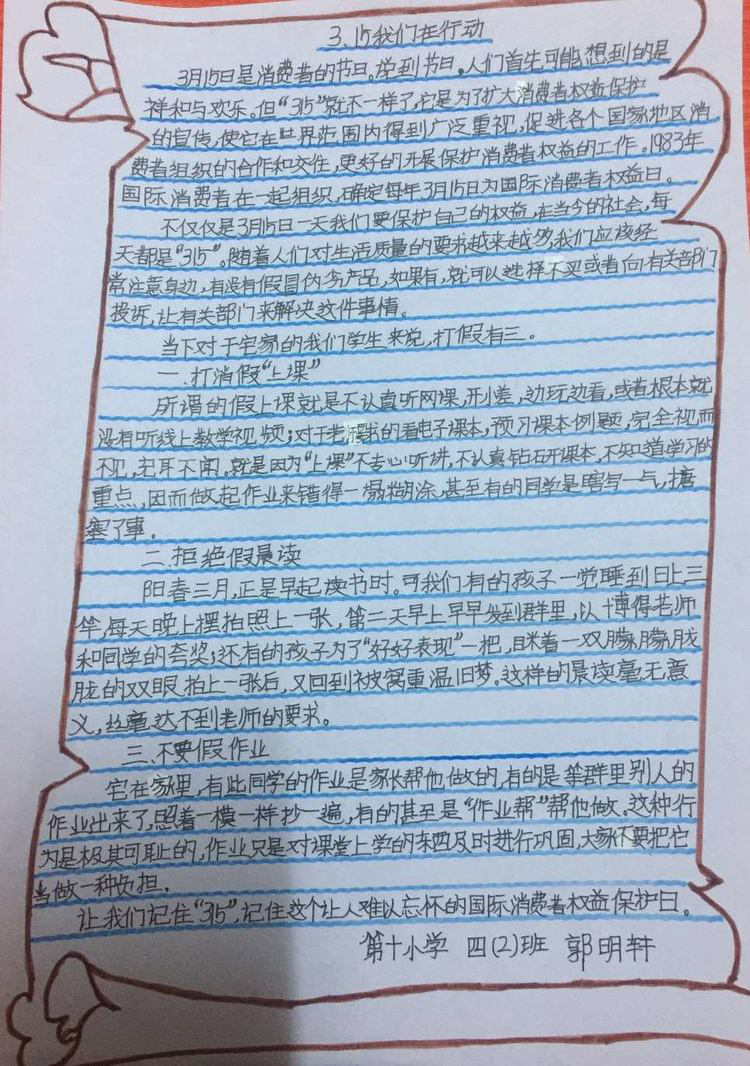 3.15我们在行动
3月15日是消费者的节日。学到节日。人们首先可能想到的是
祥和与欢乐。但“315”就不一样了,它是为了扩大消费者权益保护
的宣传,使它在世界范围内得到广泛重视,促进各个国家地区消
费者组织的合作和交往,更好的开展保护消费者权益的工作。1983年
国际消费者在一起组织,确定每年3月15日为国际消费者权益日。
不仅仅是3月15日一天我们要保护自己的权益,在当今的社会,每
天都是“315”。随着人们对生活质量的要求越来越多,我们应该经
常注意身边,有没有假冒伪劣产品,如果有,就可以选择不买或者向有关部门
投诉,让有关部门来解决这件事情。
当下对于宅家的我们学生来说,打假有三。
一.打消假“上课”
所谓的假上课就是不认真听网课,开小差,边玩边看,或者根本就
没有听线上教学视频;对于老师的看电子课本,预习课本例题,完全视而
不见,充耳不闻,就是因为“上课”不专心听讲,不认真钻研课本,不知道学习的
重点,因而做起作业来错得一塌糊涂,甚至有的同学是瞎写一气,搪
塞了事.
二.拒绝假晨读
阳春三月,正是早起读书时。可我们有的孩子一觉睡到日上三
竿,每天晚上摆拍照上一张,第二天早上早早发到群里,以博得老师
和同学的夸奖;还有的孩子为了“好好表现”一把,眯着一双朦朦胧
胧的双眼,拍上一张后,又回到被窝重温旧梦。这样的晨读毫无意
义,丝毫达不到老师的要求。
三.不要假作业
宅在家里,有些同学的作业是家长帮他做的,有的是等群里别人的
作业出来了,照着一模一样抄一遍,有的甚至是“作业帮”帮他做。这种行
为是极其可耻的,作业只是对课堂上学的东西及时进行巩固,大家不要把它
当做一种负担.
让我们记住“315”,记住这个让人难以忘怀的国际消费者权益保护日。
第十小学 四(2)班 郭明轩